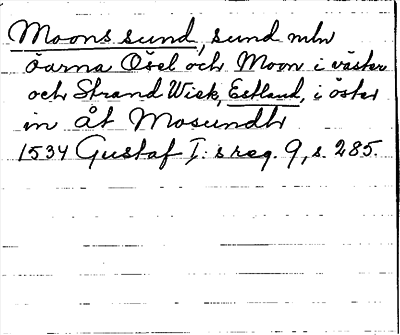 Moons sund, sund mln
öarna Ösel och Moon i väster
och Strand Wiek, Estland, i öster
in åt Mosundh
1534 Gustaf I:s reg. 9, s. 285.